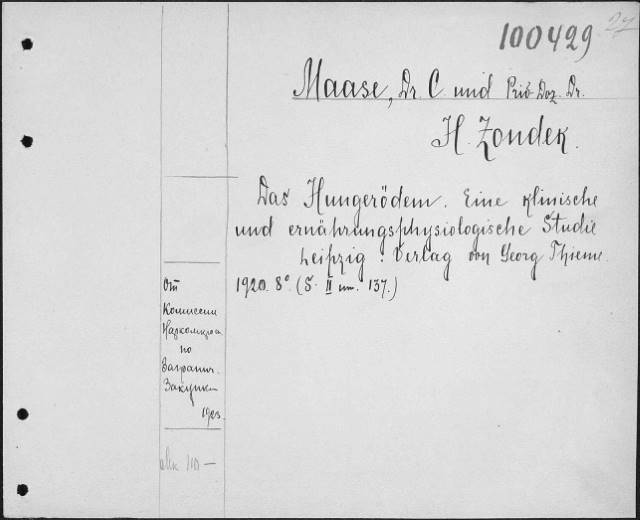 100429
Maase, Dr. C. und Priv. Doz. Dr.
H. Zondek.
Das Hungerödem. Eine klinische
und ernährungsphysiologische Studie
Leipzig: Verlag von Georg Thieme.
1920. 8° (S. II um. 137.)
От
Комиссии
по
Загранич.
Закупке
1923.